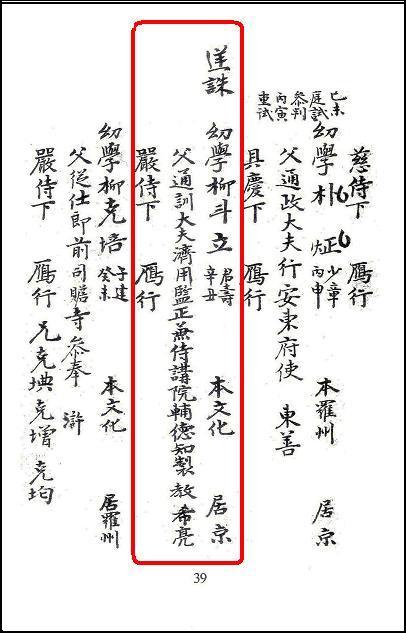 慈侍下 鴈行
己未
庭試
參判
丙寅
重試
幼學 朴 炡 少章 丙申 本羅州 居京
父通政大夫行安東府使 東善
具慶下 鴈行
逆誅 幼學 柳斗立 君壽 辛丑 本文化 居京
父通訓大夫濟用監正兼侍講院輔德知製教 希亮
嚴侍下 鴈行
幼學 柳克培 子建 癸未 本文化 居羅州
父從仕郎前司贍寺參奉 滸
嚴侍下 鴈行 兄克㙉 克增 克均
39